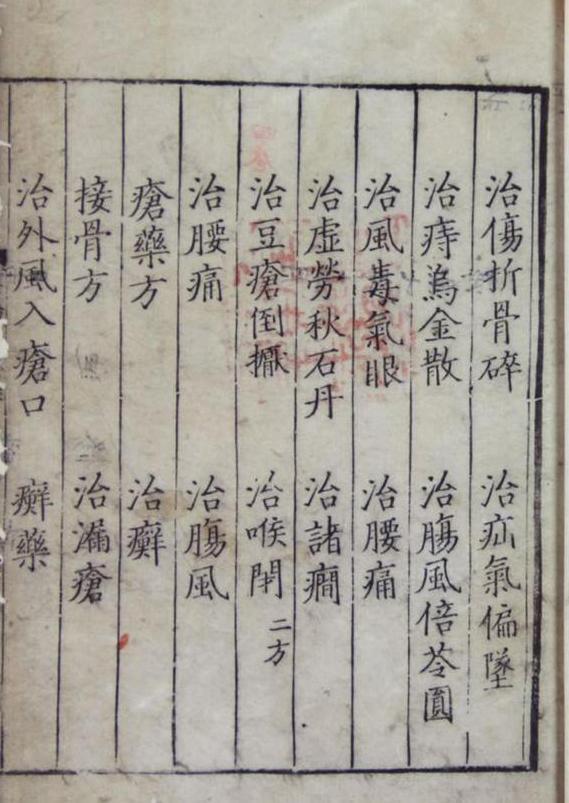 治傷折骨碎　治疝氣偏墜
治痔烏金散　治腸風倍苓圓
治風毒氣眼　治腰痛
治虛勞秋石丹　治諸癇
治豆瘡倒擫　治喉閉二方
治腰痛　治腸風
瘡藥方　治癬
接骨方　治漏瘡
治外風入瘡口　癬藥